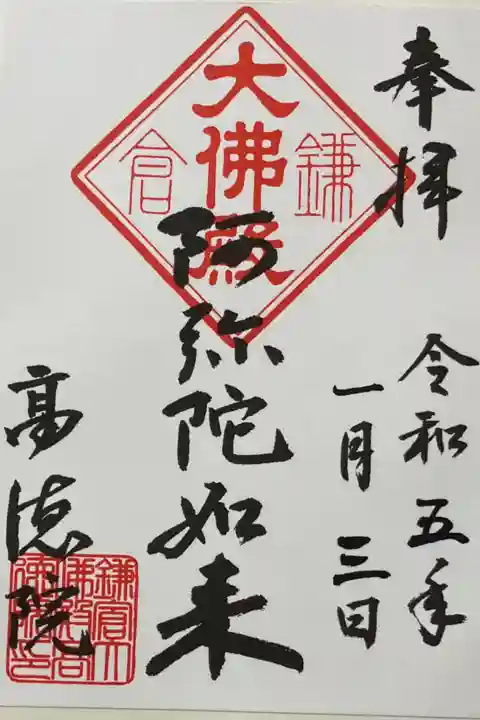 奉拝
令和五年
一月三日
鎌倉
大佛殿
阿弥陀如来
高徳院